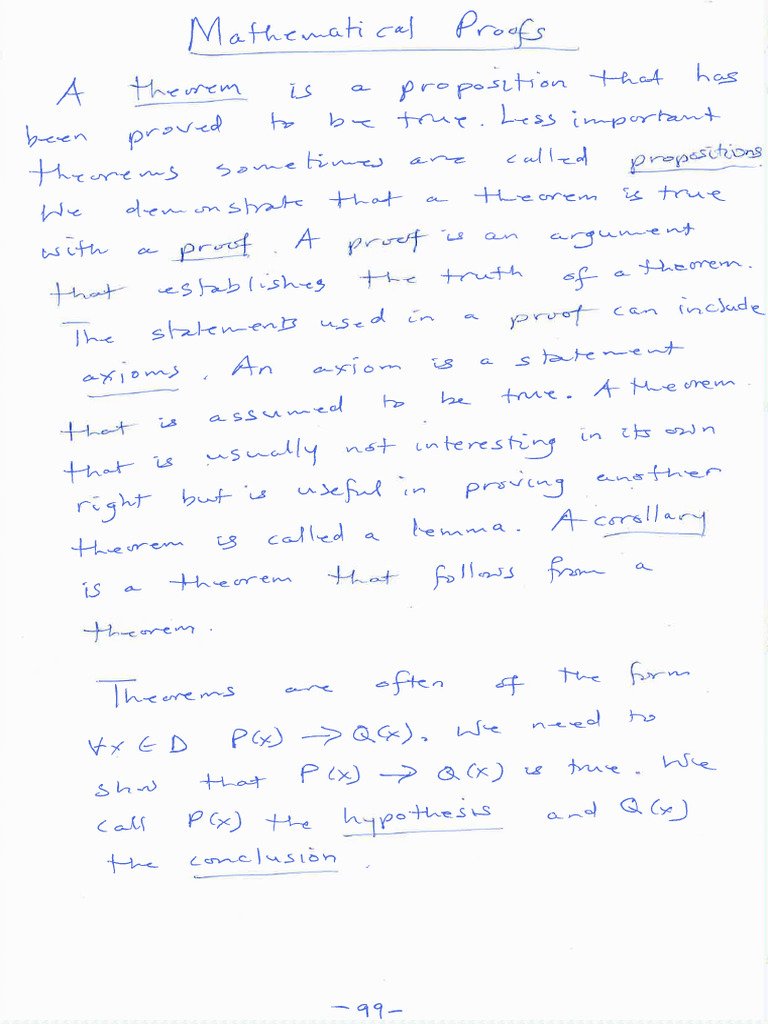 Mathematical Proofs
A theorem is a proposition that has
been proved to be true. Less important
theorems sometimes are called propositions
We demonstrate that a theorem is true
with a proof. A proof is an argument
that establishes the truth of a theorem.
The statements used in a proof can include
axioms. An axiom is a statement
that is assumed to be true. A theorem
that is usually not interesting in its own
right but is useful in proving another
theorem is called a lemma. A corollary
is a theorem that follows from a
theorem.
Theorems are often of the form
∀x ∈ D P(x) → Q(x). We need to
show that P(x) → Q(x) is true. We
call P(x) the hypothesis and Q(x)
the conclusion.
-99-